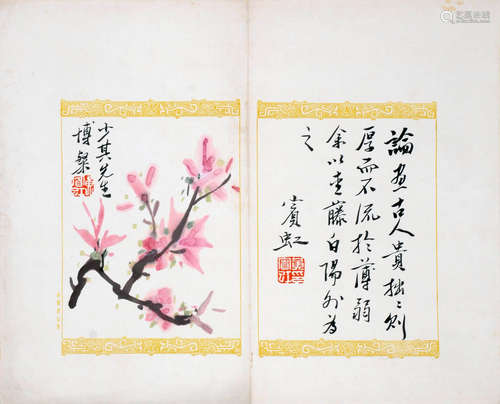 論畫古人貴拙〻則
厚而不流於薄弱
余以青藤白陽外爲
之
賓虹
少其先生
博粲